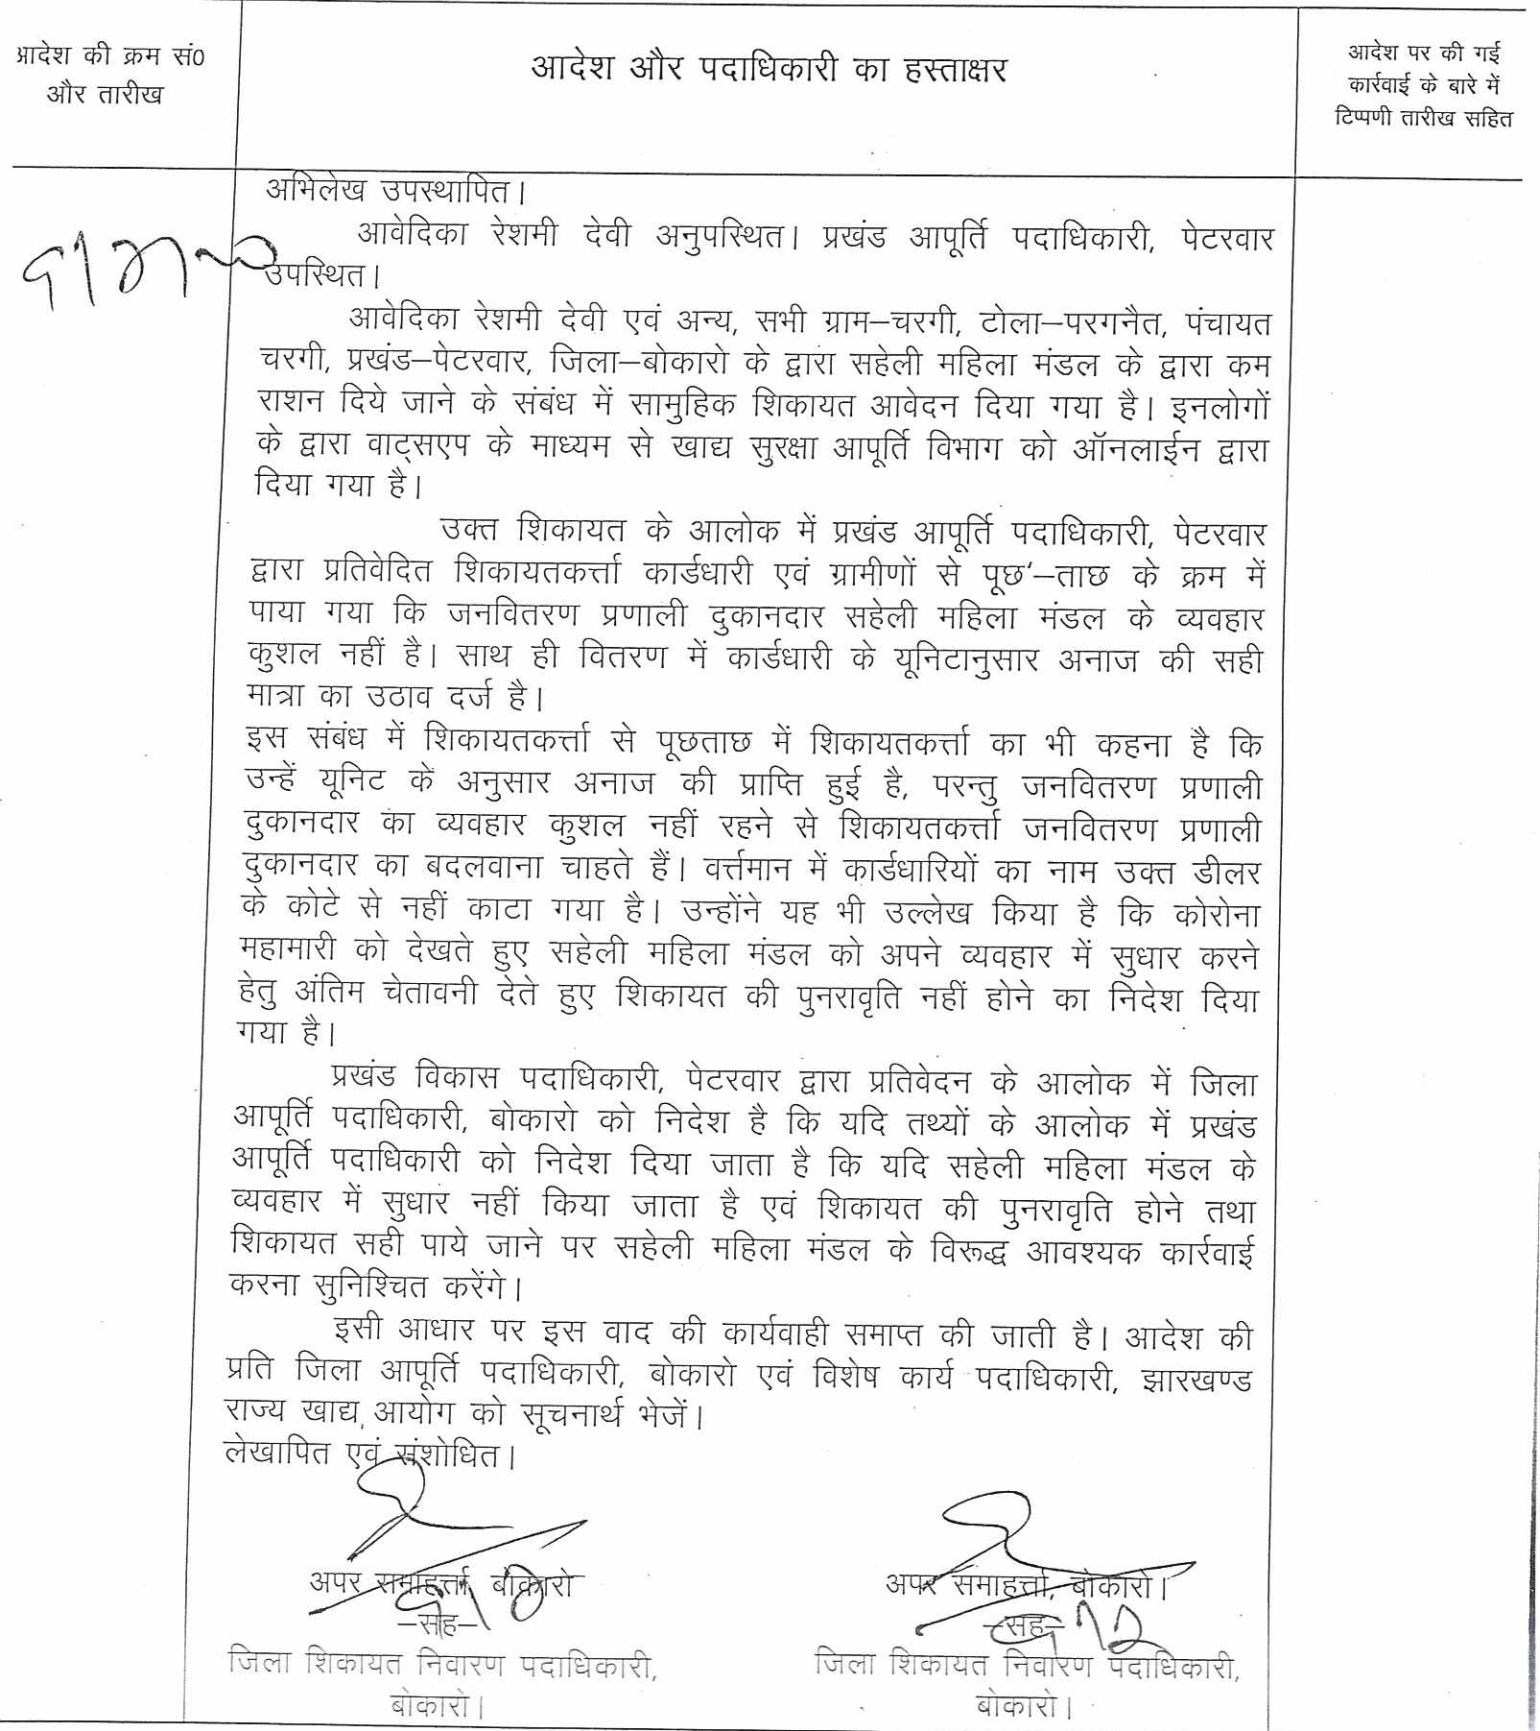 आदेश की क्रम सं०
और तारीख
आदेश और पदाधिकारी का हस्ताक्षर
आदेश पर की गई
कार्रवाई के बारे में
टिप्पणी तारीख सहित
अभिलेख उपस्थापित।
आवेदिका रेशमी देवी अनुपस्थित। प्रखंड आपूर्ति पदाधिकारी, पेटरवार
उपस्थित।
आवेदिका रेशमी देवी एवं अन्य, सभी ग्राम–चरगी, टोला–परगनैत, पंचायत
चरगी, प्रखंड–पेटरवार, जिला–बोकारो के द्वारा सहेली महिला मंडल के द्वारा कम
राशन दिये जाने के संबंध में सामुहिक शिकायत आवेदन दिया गया है। इनलोगों
के द्वारा वाट्सएप के माध्यम से खाद्य सुरक्षा आपूर्ति विभाग को ऑनलाईन द्वारा
दिया गया है।
उक्त शिकायत के आलोक में प्रखंड आपूर्ति पदाधिकारी, पेटरवार
द्वारा प्रतिवेदित शिकायतकर्त्ता कार्डधारी एवं ग्रामीणों से पूछ'–ताछ के क्रम में
पाया गया कि जनवितरण प्रणाली दुकानदार सहेली महिला मंडल के व्यवहार
कुशल नहीं है। साथ ही वितरण में कार्डधारी के यूनिटानुसार अनाज की सही
मात्रा का उठाव दर्ज है।
इस संबंध में शिकायतकर्त्ता से पूछताछ में शिकायतकर्त्ता का भी कहना है कि
उन्हें यूनिट के अनुसार अनाज की प्राप्ति हुई है, परन्तु जनवितरण प्रणाली
दुकानदार का व्यवहार कुशल नहीं रहने से शिकायतकर्त्ता जनवितरण प्रणाली
दुकानदार का बदलवाना चाहते हैं। वर्त्तमान में कार्डधारियों का नाम उक्त डीलर
के कोटे से नहीं काटा गया है। उन्होंने यह भी उल्लेख किया है कि कोरोना
महामारी को देखते हुए सहेली महिला मंडल को अपने व्यवहार में सुधार करने
हेतु अंतिम चेतावनी देते हुए शिकायत की पुनरावृति नहीं होने का निदेश दिया
गया है।
प्रखंड विकास पदाधिकारी, पेटरवार द्वारा प्रतिवेदन के आलोक में जिला
आपूर्ति पदाधिकारी, बोकारो को निदेश है कि यदि तथ्यों के आलोक में प्रखंड
आपूर्ति पदाधिकारी को निदेश दिया जाता है कि यदि सहेली महिला मंडल के
व्यवहार में सुधार नहीं किया जाता है एवं शिकायत की पुनरावृति होने तथा
शिकायत सही पाये जाने पर सहेली महिला मंडल के विरूद्ध आवश्यक कार्रवाई
करना सुनिश्चित करेंगे।
इसी आधार पर इस वाद की कार्यवाही समाप्त की जाती है। आदेश की
प्रति जिला आपूर्ति पदाधिकारी, बोकारो एवं विशेष कार्य पदाधिकारी, झारखण्ड
राज्य खाद्य आयोग को सूचनार्थ भेजें।
लेखापित एवं संशोधित।
अपर समाहर्त्ता, बोकारो
–सह–
जिला शिकायत निवारण पदाधिकारी,
बोकारो।
अपर समाहर्त्ता, बोकारो।
–सह–
जिला शिकायत निवारण पदाधिकारी,
बोकारो।